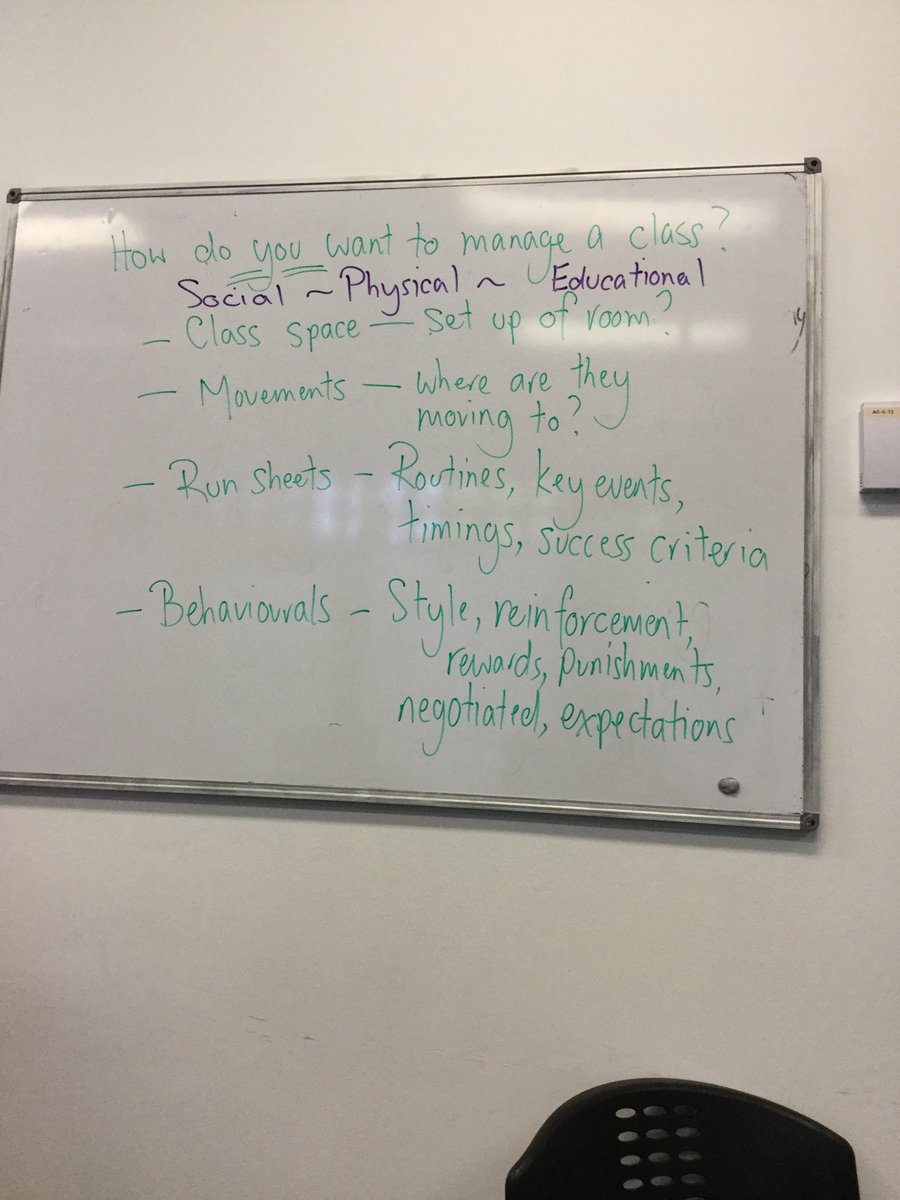 How do you want to manage a class?
Social ~ Physical ~ Educational
- Class space - Set up of room?
- Movements - Where are they
moving to?
- Run sheets - Routines, key events,
timings, success criteria
- Behaviourals - Style, reinforcement,
rewards, punishments,
negotiated, expectations
AG-G-T2